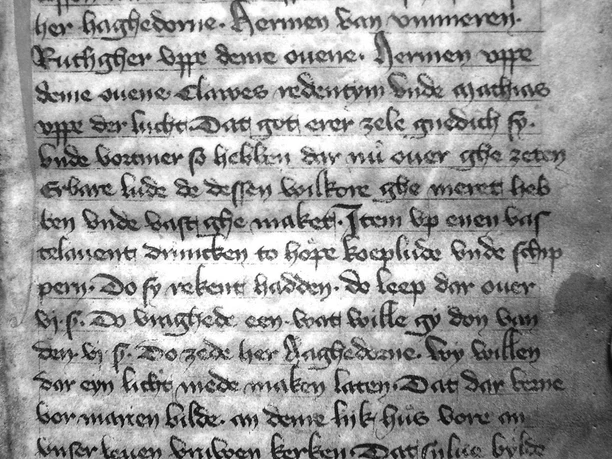 her haghedorne. Hermen van vmmeren.
Ruthgher vppe deme ouene. Hermen vppe
deme ouene Clawes redentyn vnde Mathias
vppe der lucht. Dat got erer zele gnedich sy.
vnde vortmer so hebben dar nů ouer ghe zeten
Erbare lude de dessen wilkore ghe meret heb
ben vnde vast ghe maket. Item vp enen vas
telauent druncken to hope koeplude vnde schip
pern. Do sy rekent hadden. do leep dar ouer
vi s. Do vraghede een. wat wille gy don van
den. vi s. Do zede her Haghedorne. wy willen
dar eyn licht mede maken laten. Dat dar berne
vor marien bilde. an deme lijk hůs vore an
vnser leuen vruwen kerken. Dat sulue bylde